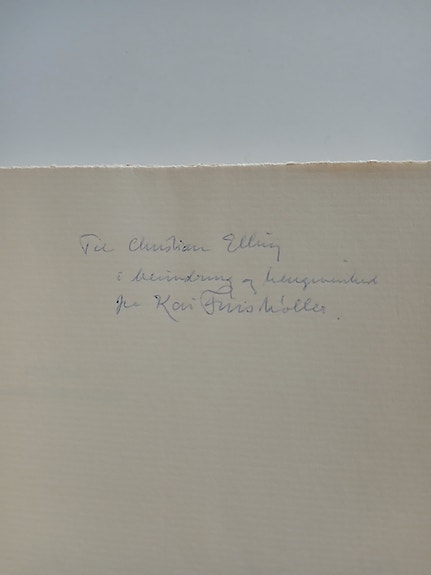 Til Christian Elling
i beundring og hengivenhed
fra Kai Friis Møller.